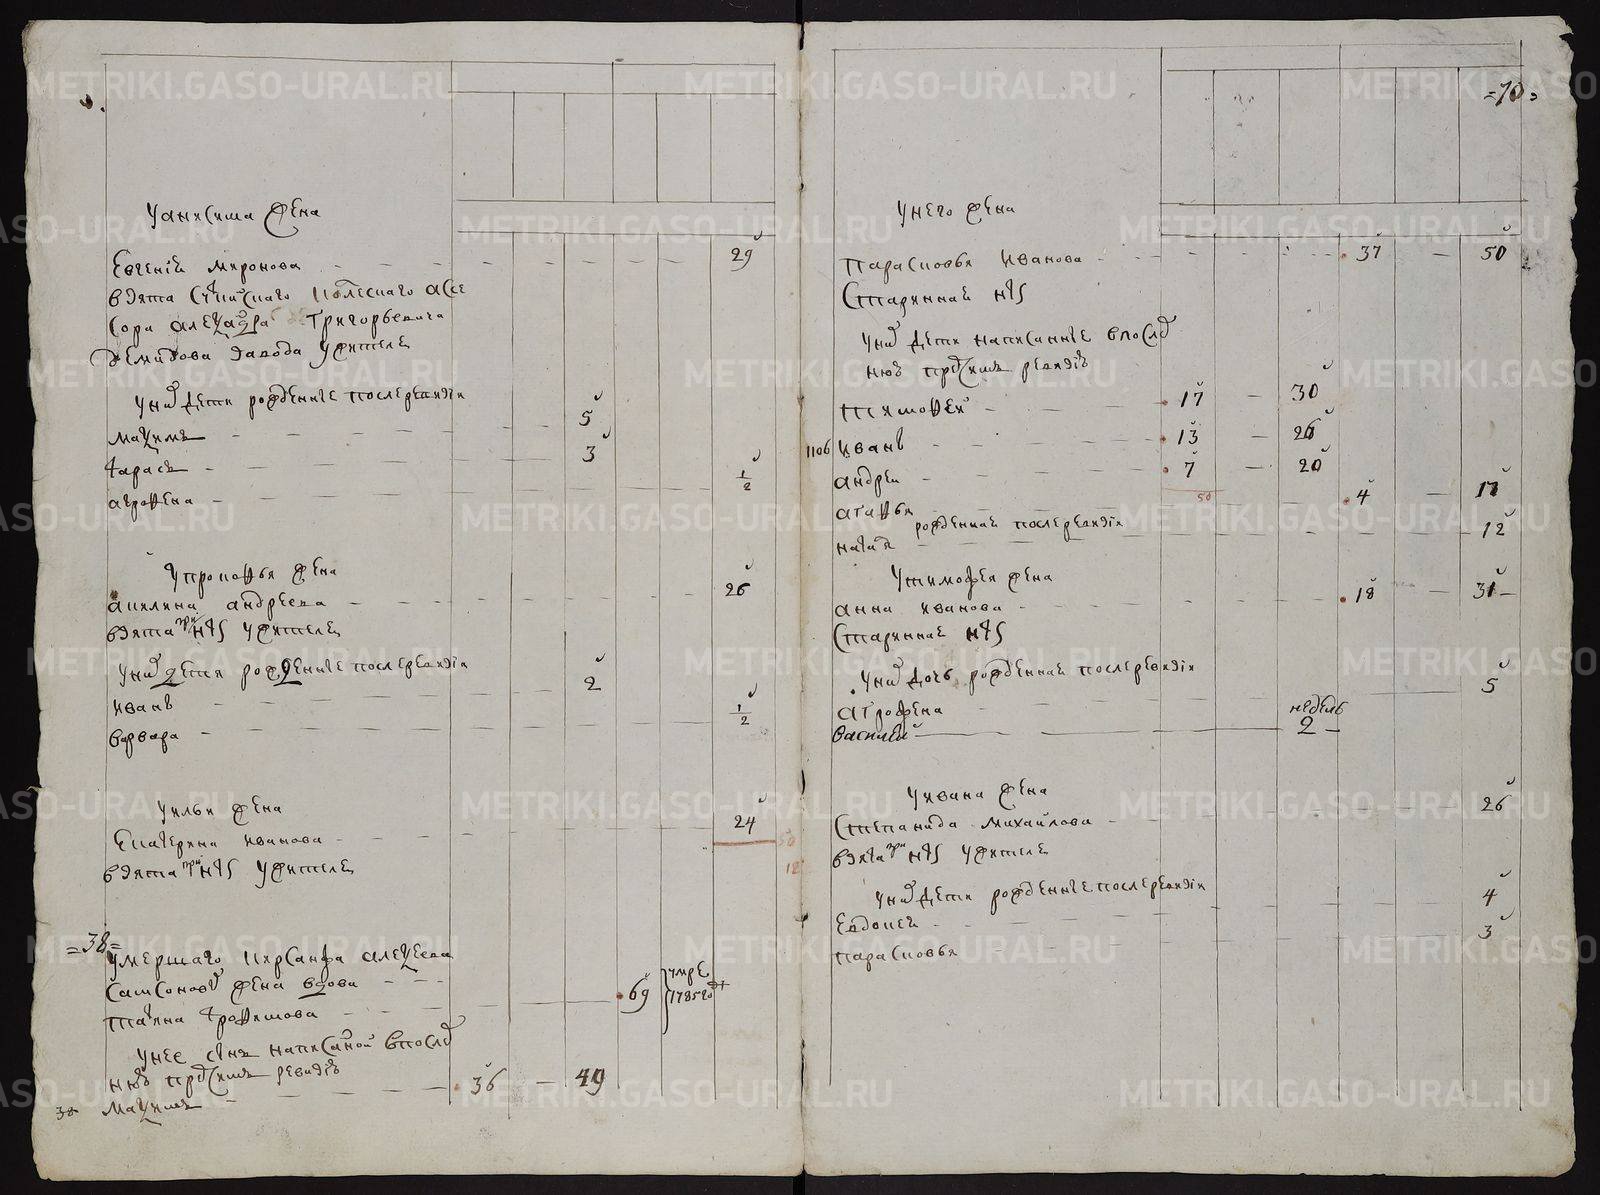 у анисима жена
Евгения миронова 29
взята
сора александра григорьевича
демидова завода жителец
у них дети рожденные после ревизии
максимъ 5
тарасъ 3
агрофена 1/2
у прокофья жена
акилина андреева 26
взята при жителец
у них дети рожденные после ревизии
иванъ 2
варвара 1/2
у ильи жена
Екатерина иванова 24
взята при жителец
=38=
умершаго хирсанфа алексеева
самсоновых жена вдова
татьяна трофимова 69 умре 1785 го
у нее сынъ написанной в послед
нюю пред симъ ревизию
38 максимъ 36 49
=70=
у него жена
парасковья иванова 37 50
старинная
у них дети написанные в послед
нюю пред симъ ревизию
тимофей 17 30
1106 иванъ 13 26
андрей 7 20
50
агафья 4 17
рожденная после ревизии
12
у тимофея жена
анна иванова 18 31
старинная
у них дочь рожденная после ревизии
агрофена 5
недель
василей 2
у ивана жена
степанида михайлова 26
взята при жителец
у них дети рожденные после ревизии
Евдокея 4
парасковья 3
METRIKI.GASO-URAL.RU